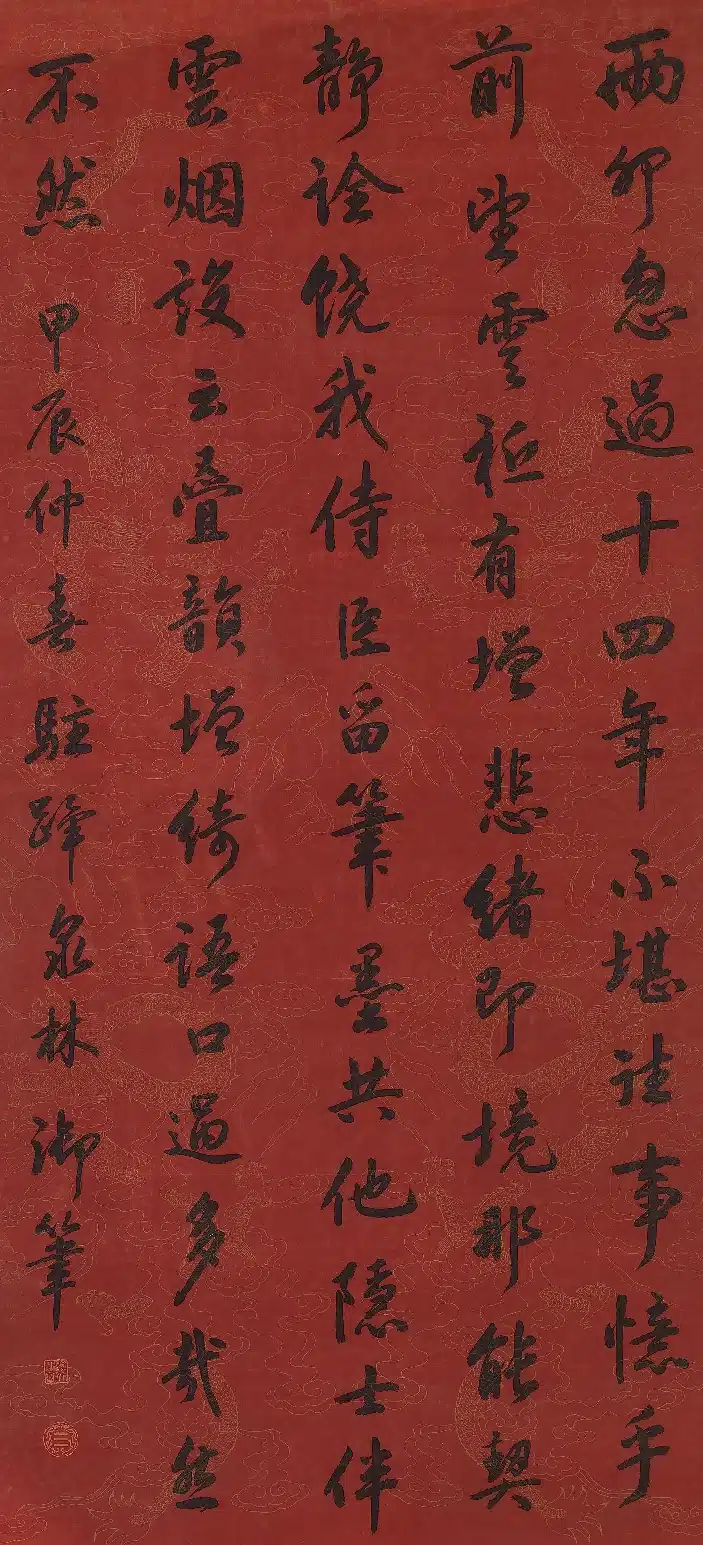 兩卯忽過十四年不堪往事憶乎
前望雲秪有增悲緒即境那能契
靜詮饒我侍臣留筆墨共他隱士伴
雲烟設云疊韻增綺語口過多哉然
不然 甲辰仲春駐蹕泉林御筆